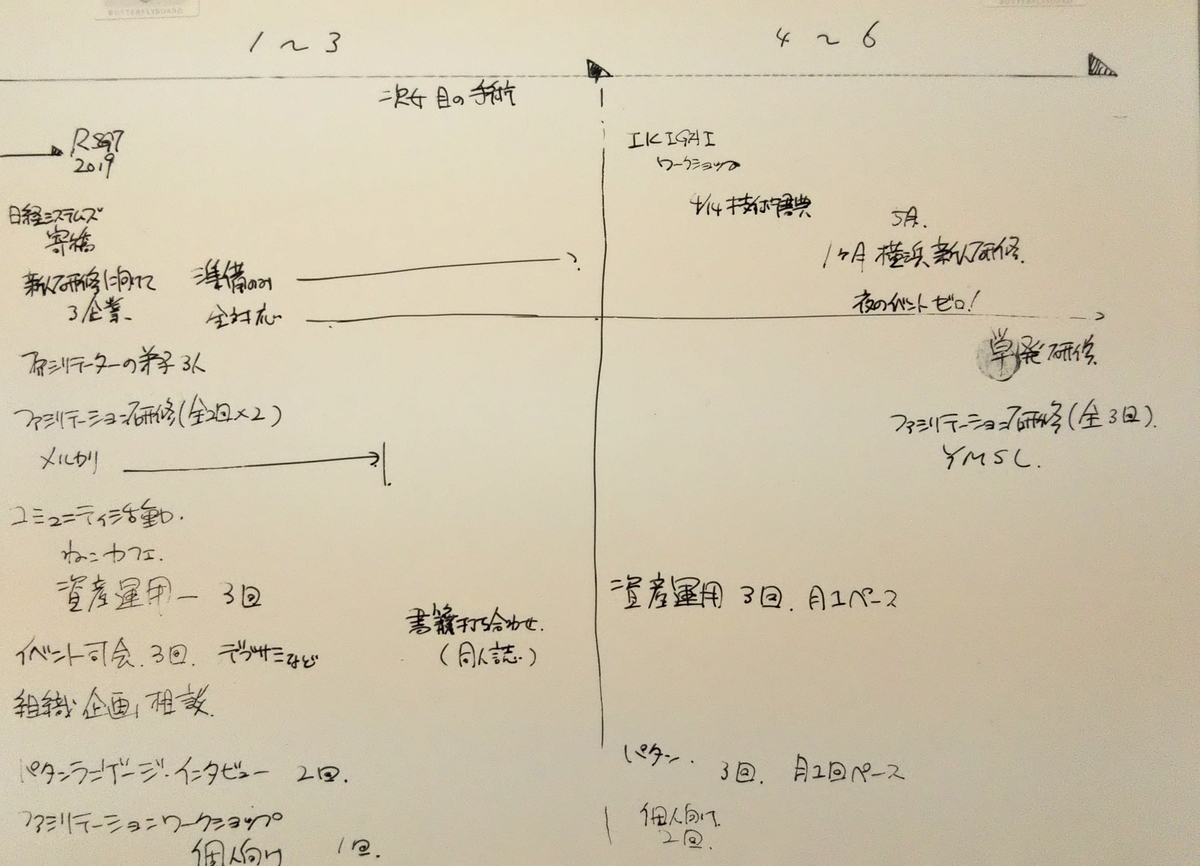 BUTTERFLYBOARD
1～3
次女目の手術
RSGT
2019
日経システムズ
寄稿
新人研修に向けて
3企業
準備のみ
全対応
ファシリテーターの弟子3人
ファシリテーション研修(全2回×2)
メルカリ
コミュニティ活動.
ねこカフェ.
資産運用ー 3回
書籍打ち合わせ.
(同人誌.)
イベント司会.3回. デブサミなど
組織企画,相談.
パタンランゲージ・インタビュー 2回.
ファシリテーションワークショップ
個人向け 1回.
4～6
IKIGAI
ワークショップ
4/14 技術書典
5月.
1ヶ月 横浜新人研修.
夜のイベントゼロ!
単発研修.
ファシリテーション研修(全3回).
YMSL.
資産運用 3回. 月1ペース
パタン.
3回. 月1回ペース
個人向け.
2回.